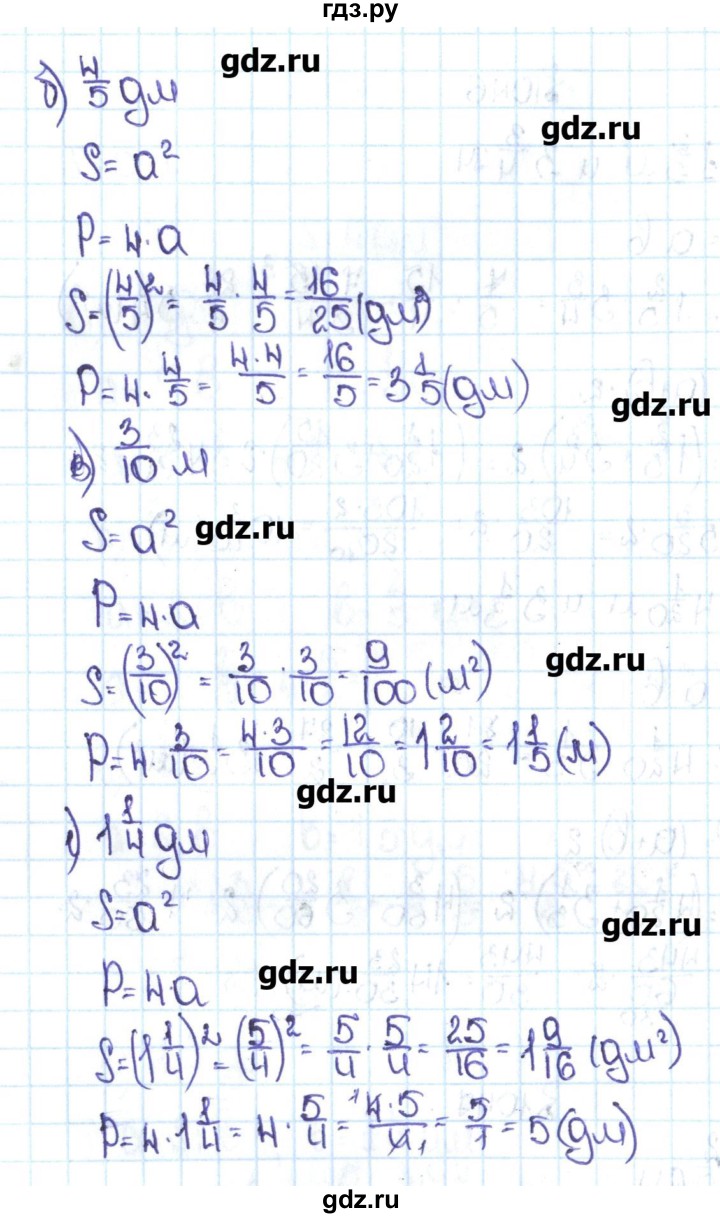 гдз.ру
gdz.ru
б) 4/5 дм
gdz.ru
S = a²
P = 4 · a
S = (4/5)² = 4/5 · 4/5 = 16/25 (дм²)
P = 4 · 4/5 = 4·4/5 = 16/5 = 3 1/5 (дм)
gdz.ru
в) 3/10 м
S = a²
gdz.ru
P = 4 · a
S = (3/10)² = 3/10 · 3/10 = 9/100 (м²)
gdz.ru
P = 4 · 3/10 = 4·3/10 = 12/10 = 1 2/10 = 1 1/5 (м)
gdz.ru
г) 1 1/4 дм
S = a²
gdz.ru
P = 4·a
gdz.ru
S = (1 1/4)² = (5/4)² = 5/4 · 5/4 = 25/16 = 1 9/16 (дм²)
P = 4 · 1 1/4 = 4 · 5/4 = ¹4·5/4₁ = 5/1 = 5 (дм)
gdz.ru